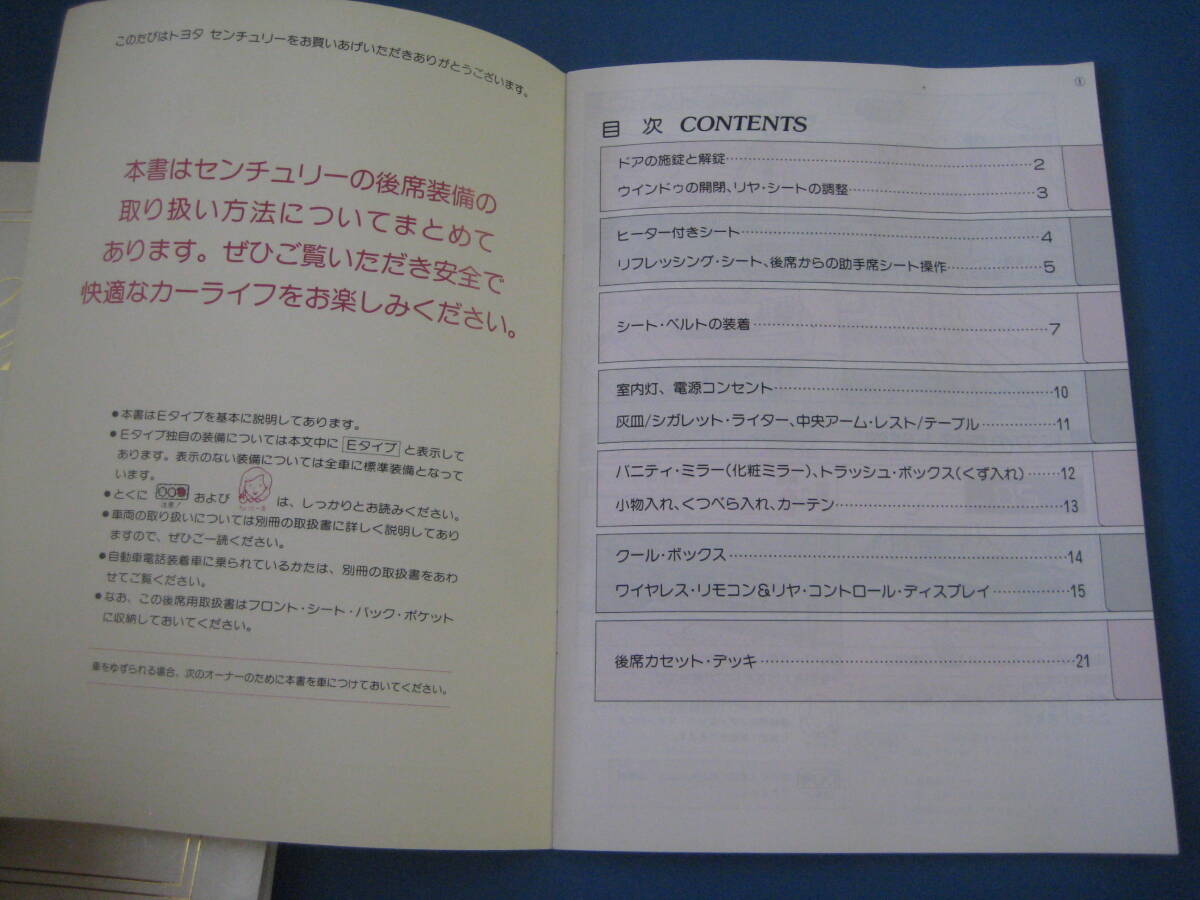 このたびはトヨタ センチュリーをお買いあげいただきありがとうございます。
本書はセンチュリーの後席装備の
取り扱い方法についてまとめて
あります。ぜひご覧いただき安全で
快適なカーライフをお楽しみください。
●本書はEタイプを基本に説明してあります。
●Eタイプ独自の装備については本文中に Eタイプ と表示して
あります。表示のない装備については全車に標準装備となって
います。
●とくに 注意! および は、しっかりとお読みください。
●車両の取り扱いについては別冊の取扱書に詳しく説明してあり
ますので、ぜひご一読ください。
●自動車電話装着車に乗られているかたは、別冊の取扱書をあわ
せてご覧ください。
●なお、この後席用取扱書はフロント・シート・バック・ポケット
に収納しておいてください。
車をゆずられる場合、次のオーナーのために本書を車につけておいてください。
①
目 次 CONTENTS
ドアの施錠と解錠……2
ウインドゥの開閉、リヤ・シートの調整……3
ヒーター付きシート……4
リフレッシング・シート、後席からの助手席シート操作……5
シート・ベルトの装着……7
室内灯、電源コンセント……10
灰皿/シガレット・ライター、中央アーム・レスト/テーブル……11
バニティ・ミラー(化粧ミラー)、トラッシュ・ボックス(くず入れ)……12
小物入れ、くつべら入れ、カーテン……13
クール・ボックス……14
ワイヤレス・リモコン&リヤ・コントロール・ディスプレイ……15
後席カセット・デッキ……21